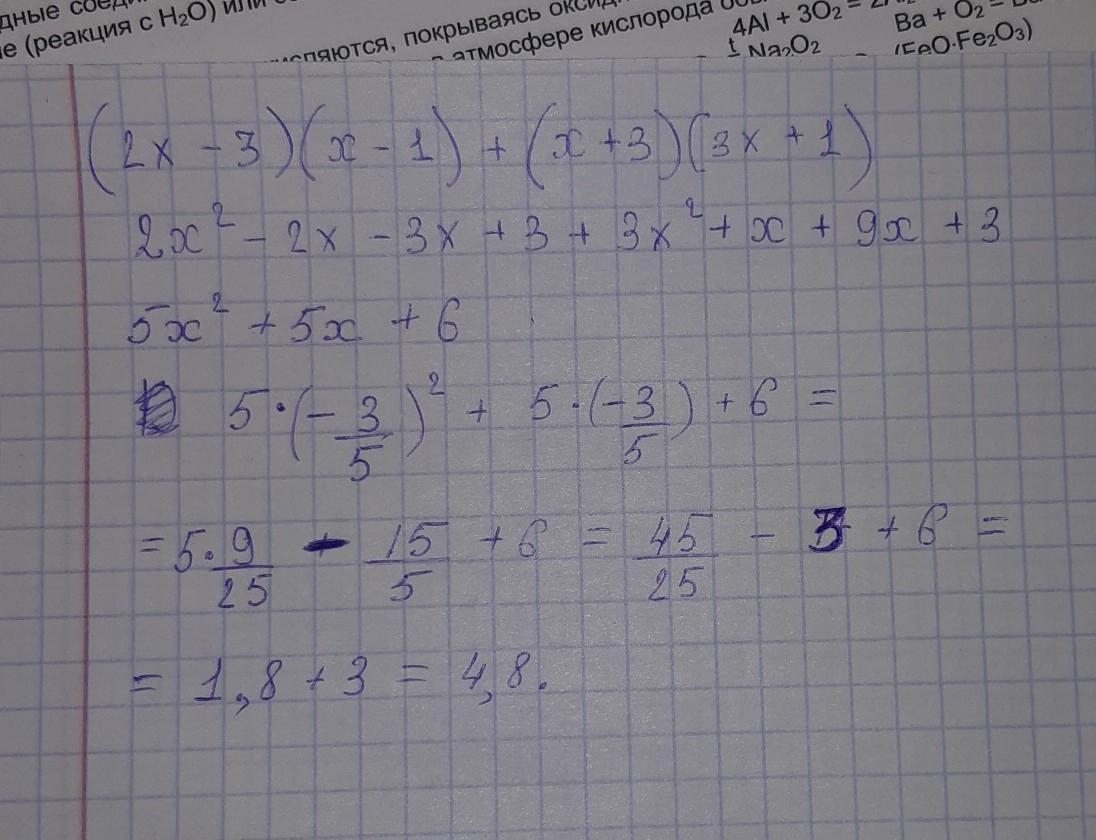 дные соеди
4Al + 3O₂ =
Ba + O₂ =
ие (реакция с H₂O) или
исляются, покрываясь оксид
атмосфере кислорода
t Na₂O₂
(FeO·Fe₂O₃)
(2x - 3)(x - 1) + (x + 3)(3x + 1)
2x² - 2x - 3x + 3 + 3x² + x + 9x + 3
5x² + 5x + 6
5·(-3/5)² + 5·(-3/5) + 6 =
= 5·9/25 - 15/5 + 6 = 45/25 - 3 + 6 =
= 1,8 + 3 = 4,8.